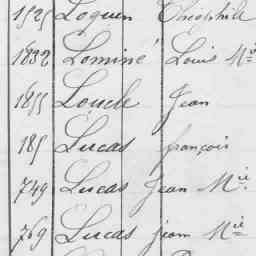 1525 Loquen Théophile
1832 Lominé Louis Mie
1855 Loucle Jean
185 Lucas françois
749 Lucas Jean Mie
769 Lucas jean Mie